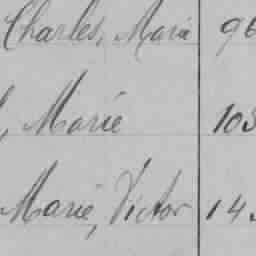 Charles, Marie 96
, Marie 103
Marie, Victor 14